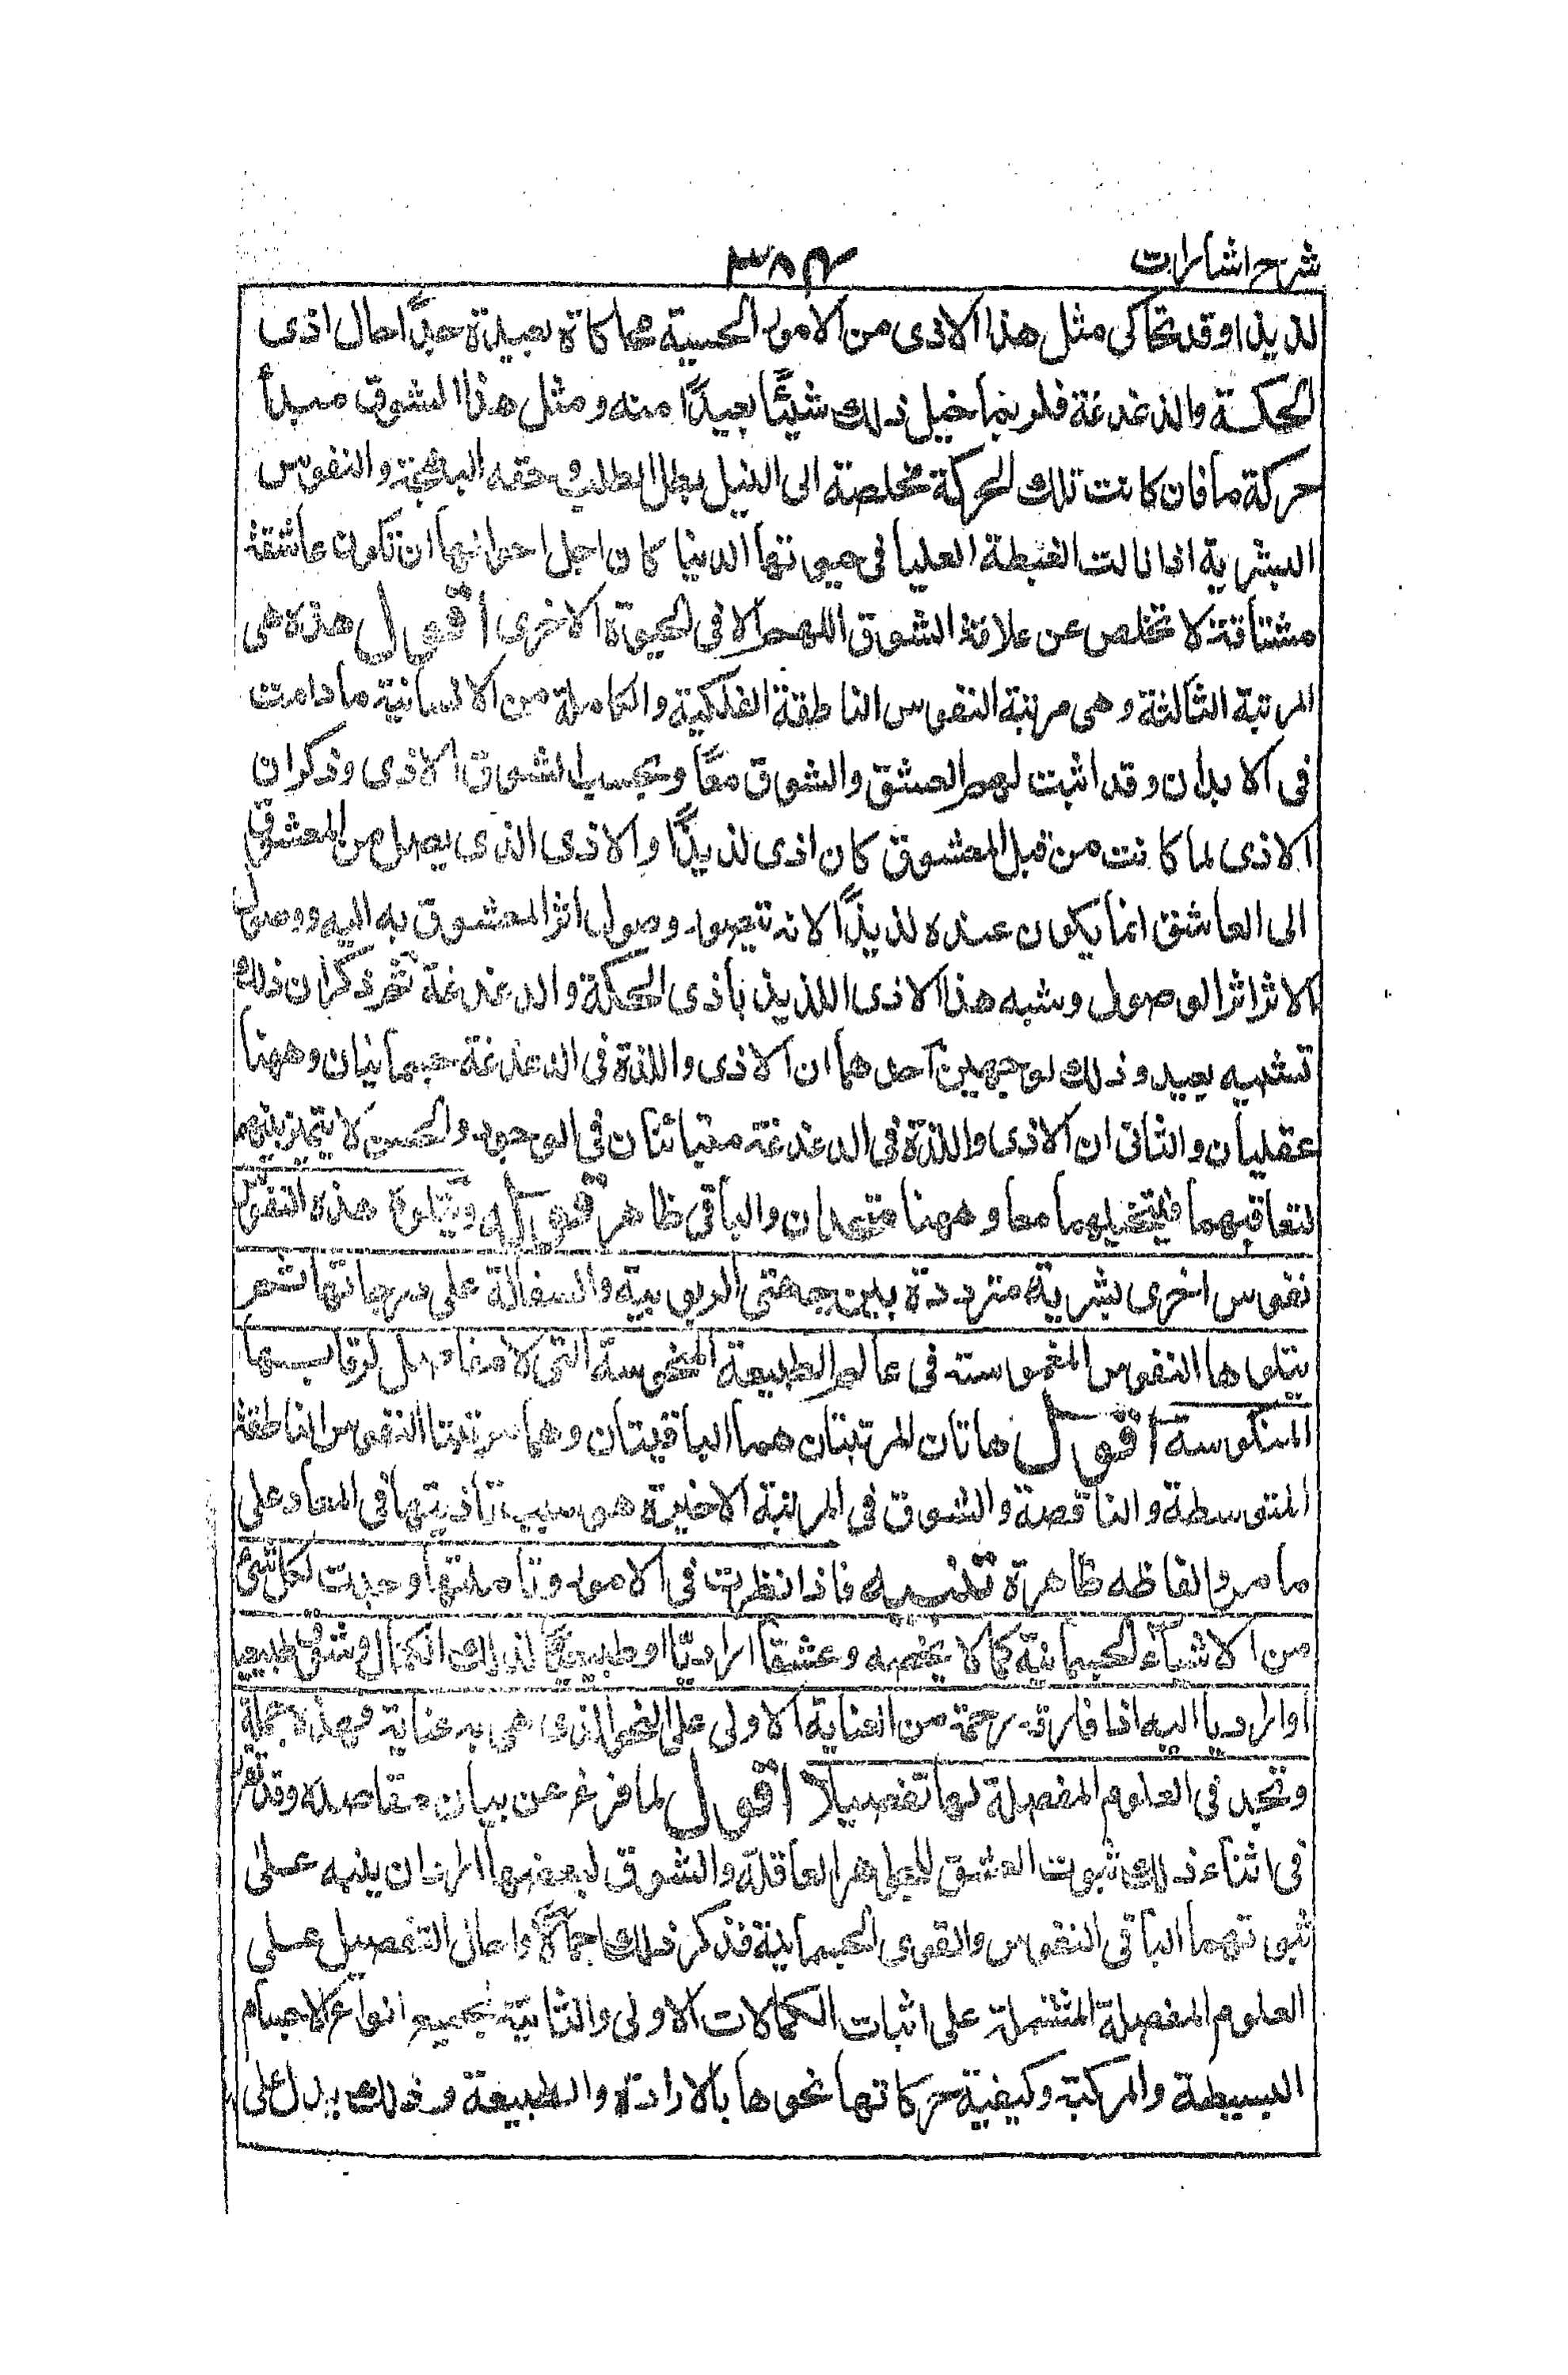 شرح اشارات ٣٨٤
لذيذا وقد تحاكى مثل هذا الاذى من الامور الحسية محاكاة بعيدة جدًّا حال اذى
الحكة والدغدغة فلربما خيل ذلك شيئًا بعيدًا منه ومثل هذا الشوق مبدأ
حركة ما فان كانت تلك الحركة مخلصة الى النيل بطل الطلب وحقه البهجة والنفوس
البشرية اذا نالت الغبطة العليا فى حيوتها الدنيا كان اجل احوالها ان تكون عاشقة
مشتاقة لا تخلص عن علاقة الشوق اللهم الا فى الحيوة الاخرى اقول هذه هى
المرتبة الثالثة وهى مرتبة النفوس الناطقة الفلكية والكاملة من الانسانية ما دامت
فى الابدان وقد اثبت لهم العشق والشوق معًا وبحسب الشوق الاذى وذكر ان
الاذى لما كانت من قبل المعشوق كان اذى لذيذًا والاذى الذى يصل من المعشوق
الى العاشق انما يكون عنده لذيذًا لانه تتصور وصول اثر المعشوق به اليه ووصول
الاثر اثر الوصول وشبه هذا الاذى اللذيذ باذى الحكة والدغدغة ثم ذكر ان ذلك
تشبيه بعيد وذلك لوجهين احدهما ان الاذى واللذة فى الدغدغة جسمانيان وههنا
عقليان والثانى ان الاذى واللذة فى الدغدغة متبائنان فى الوجود والحس لا يتميز بينهما
لتعاقبهما فيتخيلهما معا وههنا متحدان والباقى ظاهر قوله ويتلوه هذه النفوس
نفوس اخرى بشرية مترددة بين جهتى الربوبية والسفالة على درجاتها ثم
يتلوها النفوس المغموسة فى عالم الطبيعة المنحوسة التى لا مفاصل لرقابها
المنكوسة اقول هاتان المرتبتان هما الباقيتان وهما مرتبتا النفوس الناطقة
المتوسطة والناقصة والشوق فى المرتبة الاخيرة هو سبب تاذيتها فى المعاد على
ما مر والفاظه ظاهرة تنبيه فاذا نظرت فى الامور وتاملتها وجدت لكل شئ
من الاشياء الجسمانية كمالا يخصه وعشقا اراديًّا او طبيعيًّا لذلك الكمال وشوقا طبيعيا
او اراديا اليه اذا فارقه رحمة من العناية الاولى على النحو الذى هى به عناية فهذه جملة
وتجد فى العلوم المفصلة لها تفصيلا اقول لما فرغ عن بيان مقاصده وقد تقرر
فى اثناء ذلك ثبوت العشق للجواهر العاقلة والشوق لبعضها اراد ان ينبه على
ثبوتهما لباقى النفوس والقوى الجسمانية فذكر ذلك اجمالًا واحال التفصيل على
العلوم المفصلة المشتملة على اثبات الكمالات الاولى والثانية لجميع انواع الاجسام
البسيطة والمركبة وكيفية حركاتها نحوها بالارادة والطبيعة وذلك يدل على